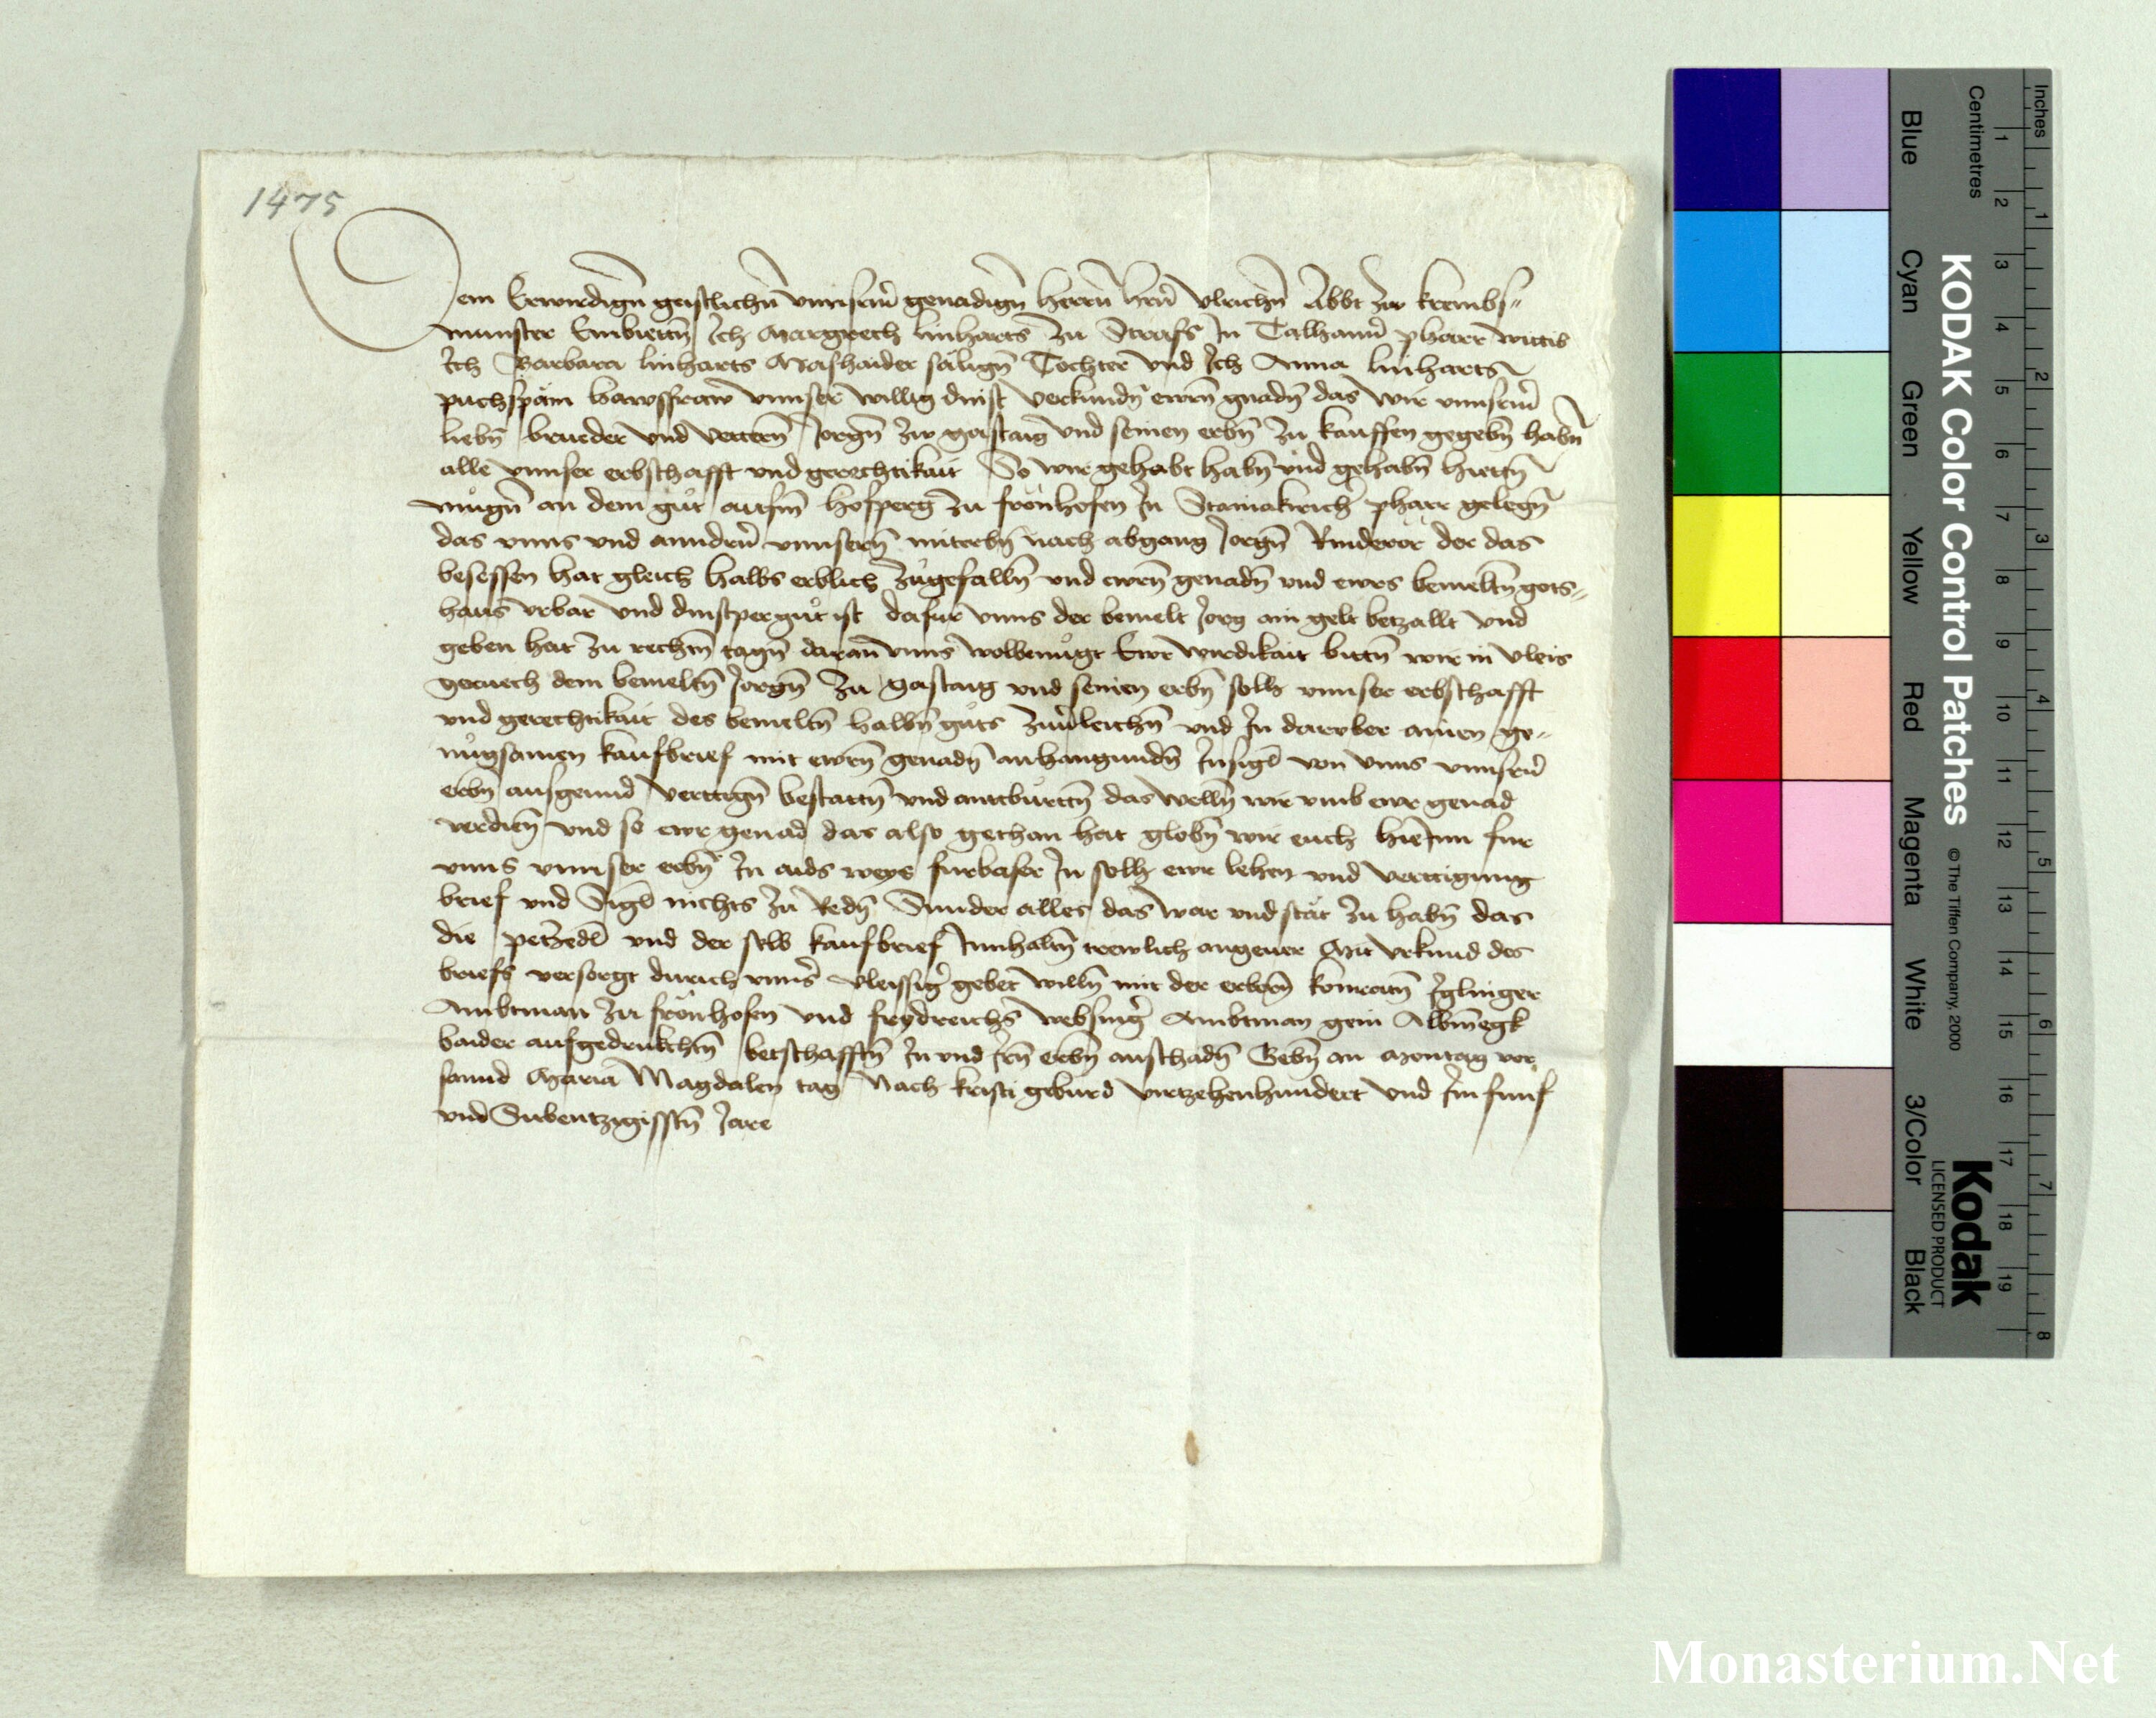 1475
Dem Erwirdign̄ geistlichn̄ vnnserm̄ genadign̄ herrn̄ hern̄ Vlrichn̄ Abbt zw krembs=
munster Embiettn̄ Ich Margrech linharts zu Strass In Talhaim̄ pharr wittib
Ich Barbara linharts Mashaider sälign̄ Tochter vnd Ich Anna linharts
puchspäm hawssfraw vnnser willig dinst verkundn̄ ewrn̄ gnadn̄ das wir vnnserm̄
liebn̄ brueder vnd vettern̄ Jorgn̄ zw gastaig vnd seinen erbn̄ zu kauffen gegebn̄ habn̄
alle vnnser erbschafft vnd gerechtikait So wir gehabt habn̄ vnd gehabn̄ hiettn̄
mugn̄ an dem gůt aufm̄ hofperg zu fronhofen In Stainakirich pharr gelegn̄
das vnns vnd anndern̄ vnnsern̄ miterbn̄ nach abgang Jorgn̄ der das
besessen hat gleich halbs erblich zůgefalln̄ vnd ewrn̄ genadn̄ vnd ewrs bemeltn̄ gots=
haus vrbar vnd dinstper gůt ist dafur vnns der bemelt Jorg ain gelt betzallt vnd
geben hat zu rechtn̄ tagn̄ daran vnns wolbenůgt Ewr wirdikait bittn̄ wir in vleis
geruech dem bemeltn̄ Jorgn̄ zu gastaig vnd seinen erbn̄ solh vnnser erbschafft
vnd gerechtikait des bemeltn̄ halbn̄ gůts zuuerleichn̄ vnd In daruber ainen ge=
nůgsamen kaufbrief mit ewrn̄ genadn̄ anhangundn̄ Insigl von vnns vnnsern̄
erbn̄ ausgeund verttign̄ bestattn̄ vnd antburttn̄ das welln̄ wir vmb ewr genad
verdien̄ vnd so ewr genad das also gethan hat globn̄ wir euch hieInn fur
vnns vnnser erbn̄ In aids weys furbaser In solh ewr lehen vnd verttigung
brief vnd Sigl nichts zu Redn̄ Sunder alles das war vnd stät zu habn̄ das
die petzedl vnd der selb kaufbrief Innhaltn̄ trewlich angeuer Mit vrkund des
briefs versorgt durich vnns vleissig̉ gebet willn̄ mit der erbern̄ konratn̄ Iglinger
Ambtman zu fronhofen vnd frydreichs websing̉ Ambtman gein Albm̄egk
baider aufgedrukchtn̄ betschafftn̄ In vnd Irn̄ erbn̄ anschadn̄ Gebn̄ an Montag vor
sannd Maria Magdalen tag Nach kristi geburd virtzehenhundert vnd Im funf
vnd Subentzigisstn̄ Jare
Inches
Centimetres
1 2 3 4 5 6 7 8 9 10 11 12 13 14 15 16 17 18 19
1 2 3 4 5 6 7 8
KODAK Color Control Patches © The Tiffen Company, 2000
Kodak
LICENSED PRODUCT
Blue Cyan Green Yellow Red Magenta White 3/Color Black
Monasterium.Net